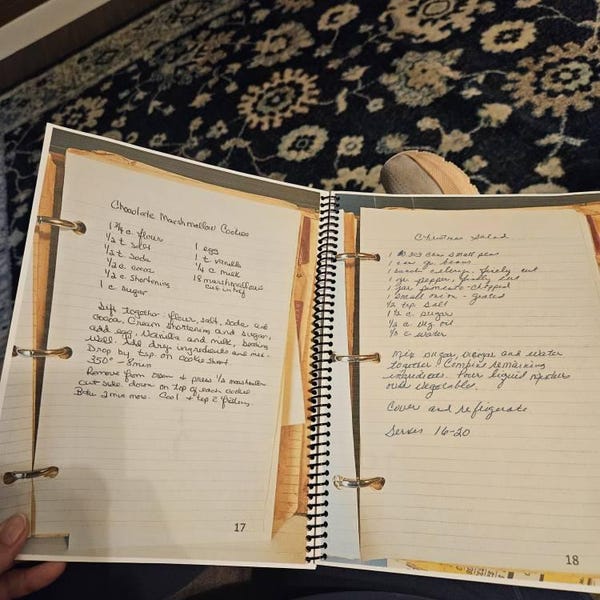 Chocolate Marshmallow Cookies
1 3/4 c. flour
1/2 t salt
1/2 t. soda
1/2 c. cocoa
1/2 c. shortening
1 c sugar
1 egg
1 t vanilla
1/4 c. milk
18 marshmallows
cut in half
Sift together: flour, salt, soda and
cocoa. Cream shortening and sugar,
add egg, vanilla and milk, beating
well. Add dry ingredients and mix.
Drop by tsp. on cookie sheet.
350° - 8 min
Remove from oven & press 1/2 marshmallow
cut side down on top of each cookie
Bake 2 min more. Cool & top c frosting.
17
Christmas Salad
1 303 can small peas
1 can gr. beans
1 bunch celery, finely cut
1 gr. pepper, finely cut
1 jar pimento-chopped
1 small onion - grated
1/2 tsp salt
1 1/2 c. sugar
1/2 c. veg oil
1/2 c. water
Mix sugar, vinegar and water
together. Combine remaining
ingredients. Pour liquid mixture
over vegetables.
Cover and refrigerate
Serves 16-20
18